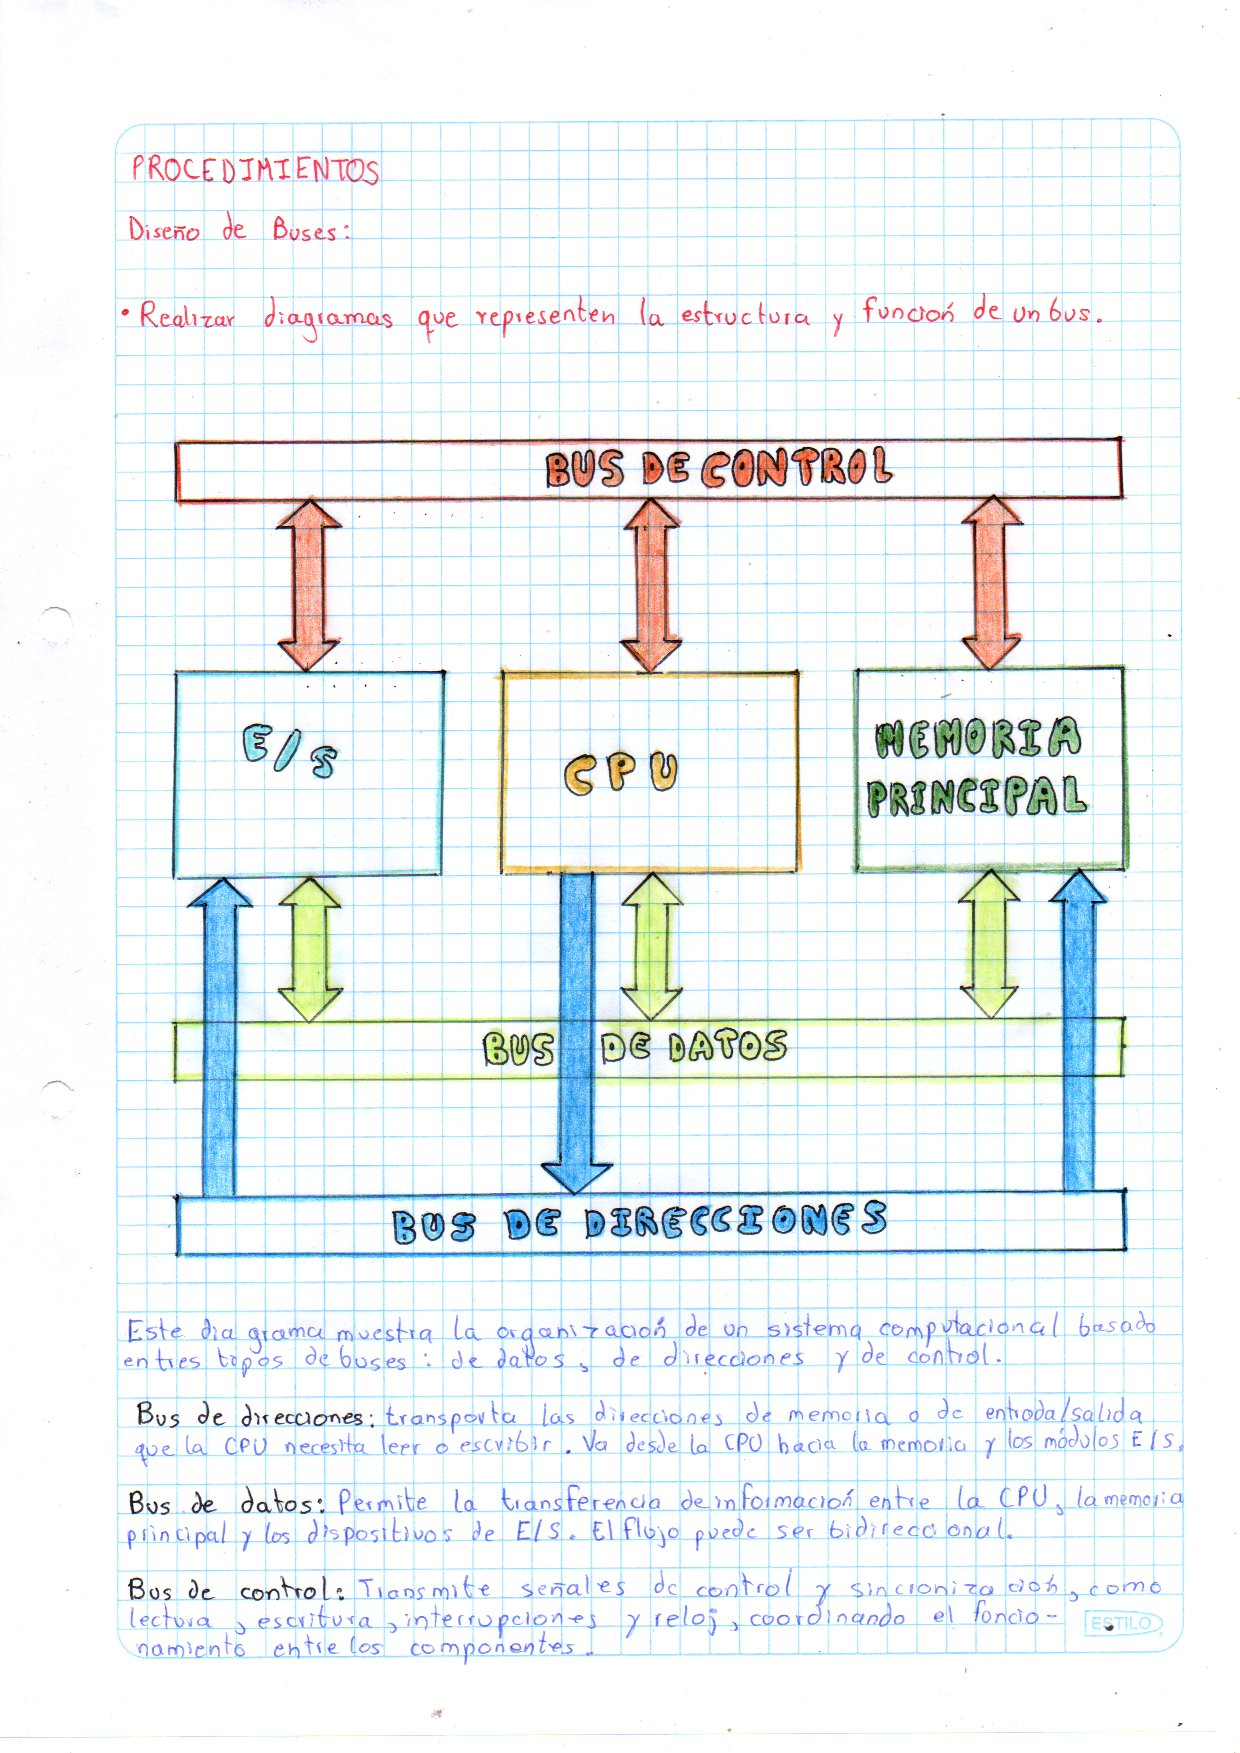 PROCEDIMIENTOS
Diseño de Buses:
• Realizar diagramas que representen la estructura y función de un bus.
BUS DE CONTROL
E/S
CPU
MEMORIA
PRINCIPAL
BUS DE DATOS
BUS DE DIRECCIONES
Este diagrama muestra la organización de un sistema computacional basado
en tres topos de buses: de datos, de direcciones y de control.
Bus de direcciones: transporta las direcciones de memoria o de entroda/salida
que la CPU necesita leer o escribir. Va desde la CPU hacia la memoria y los módulos E/S.
Bus de datos: Permite la transferencia de información entre la CPU, la memoria
principal y los dispositivos de E/S. El flujo puede ser bidireccional.
Bus de control: Transmite señales de control y sincronización, como
lectura, escritura, interrupciones y reloj, coordinando el funcio-
namiento entre los componentes.
ESTILO